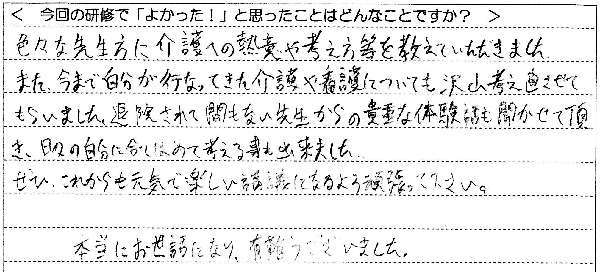 ＜ 今回の研修で「よかった！」と思ったことはどんなことですか？ ＞
色々な先生方に介護への熱意や考え方等を教えていただきました
また、今まで自分が行なってきた介護や看護についても沢山考え直させて
もらいました。退院されて間もない先生からの貴重な体験談も聞かせて頂
き、日々の自分に合てはめて考える事も出来ました
ぜひ、これからも元気で楽しい講義になるよう頑張って下さい。
本当にお世話になり、有難うございました。